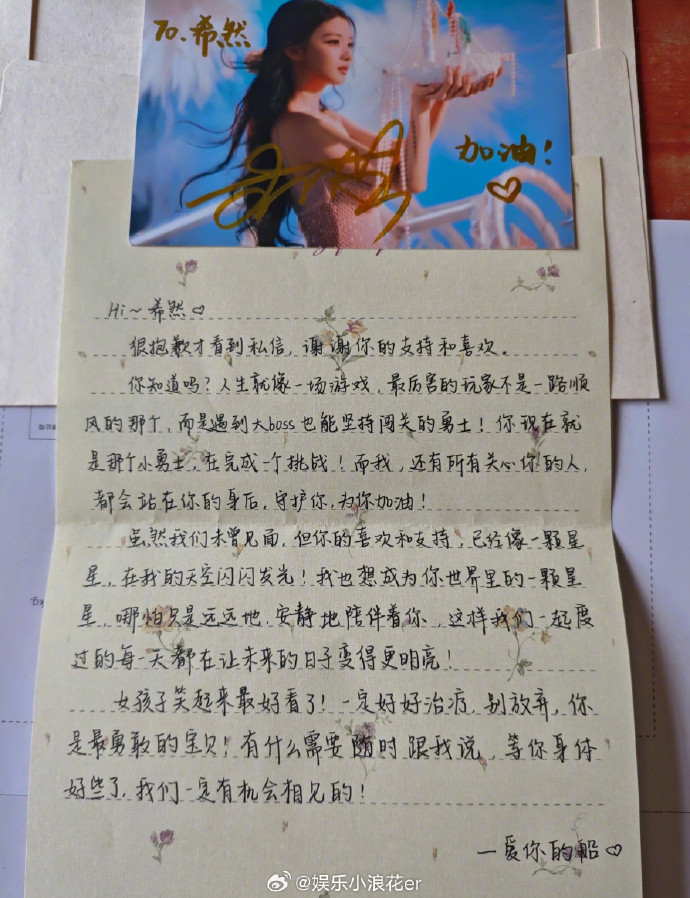 To.希然
加油！♡
Hi～希然♡
很抱歉才看到私信，谢谢你的支持和喜欢。
你知道吗？人生就像一场游戏，最厉害的玩家不是一路顺
风的那个，而是遇到大boss也能坚持闯关的勇士！你现在就
是那个小勇士，在完成一个挑战！而我，还有所有关心你的人，
都会站在你的身后，守护你，为你加油！
虽然我们未曾见面，但你的喜欢和支持，已经像一颗星
星，在我的天空闪闪发光！我也想成为你世界里的一颗星
星，哪怕只是远远地，安静地陪伴着你，这样我们一起度
过的每一天都在让未来的日子变得更明亮！
女孩子笑起来最好看了！一定好好治疗，别放弃，你
是最勇敢的宝贝！有什么需要随时跟我说，等你身体
好些了，我们一定有机会相见的！
—爱你的船♡
@娱乐小浪花er